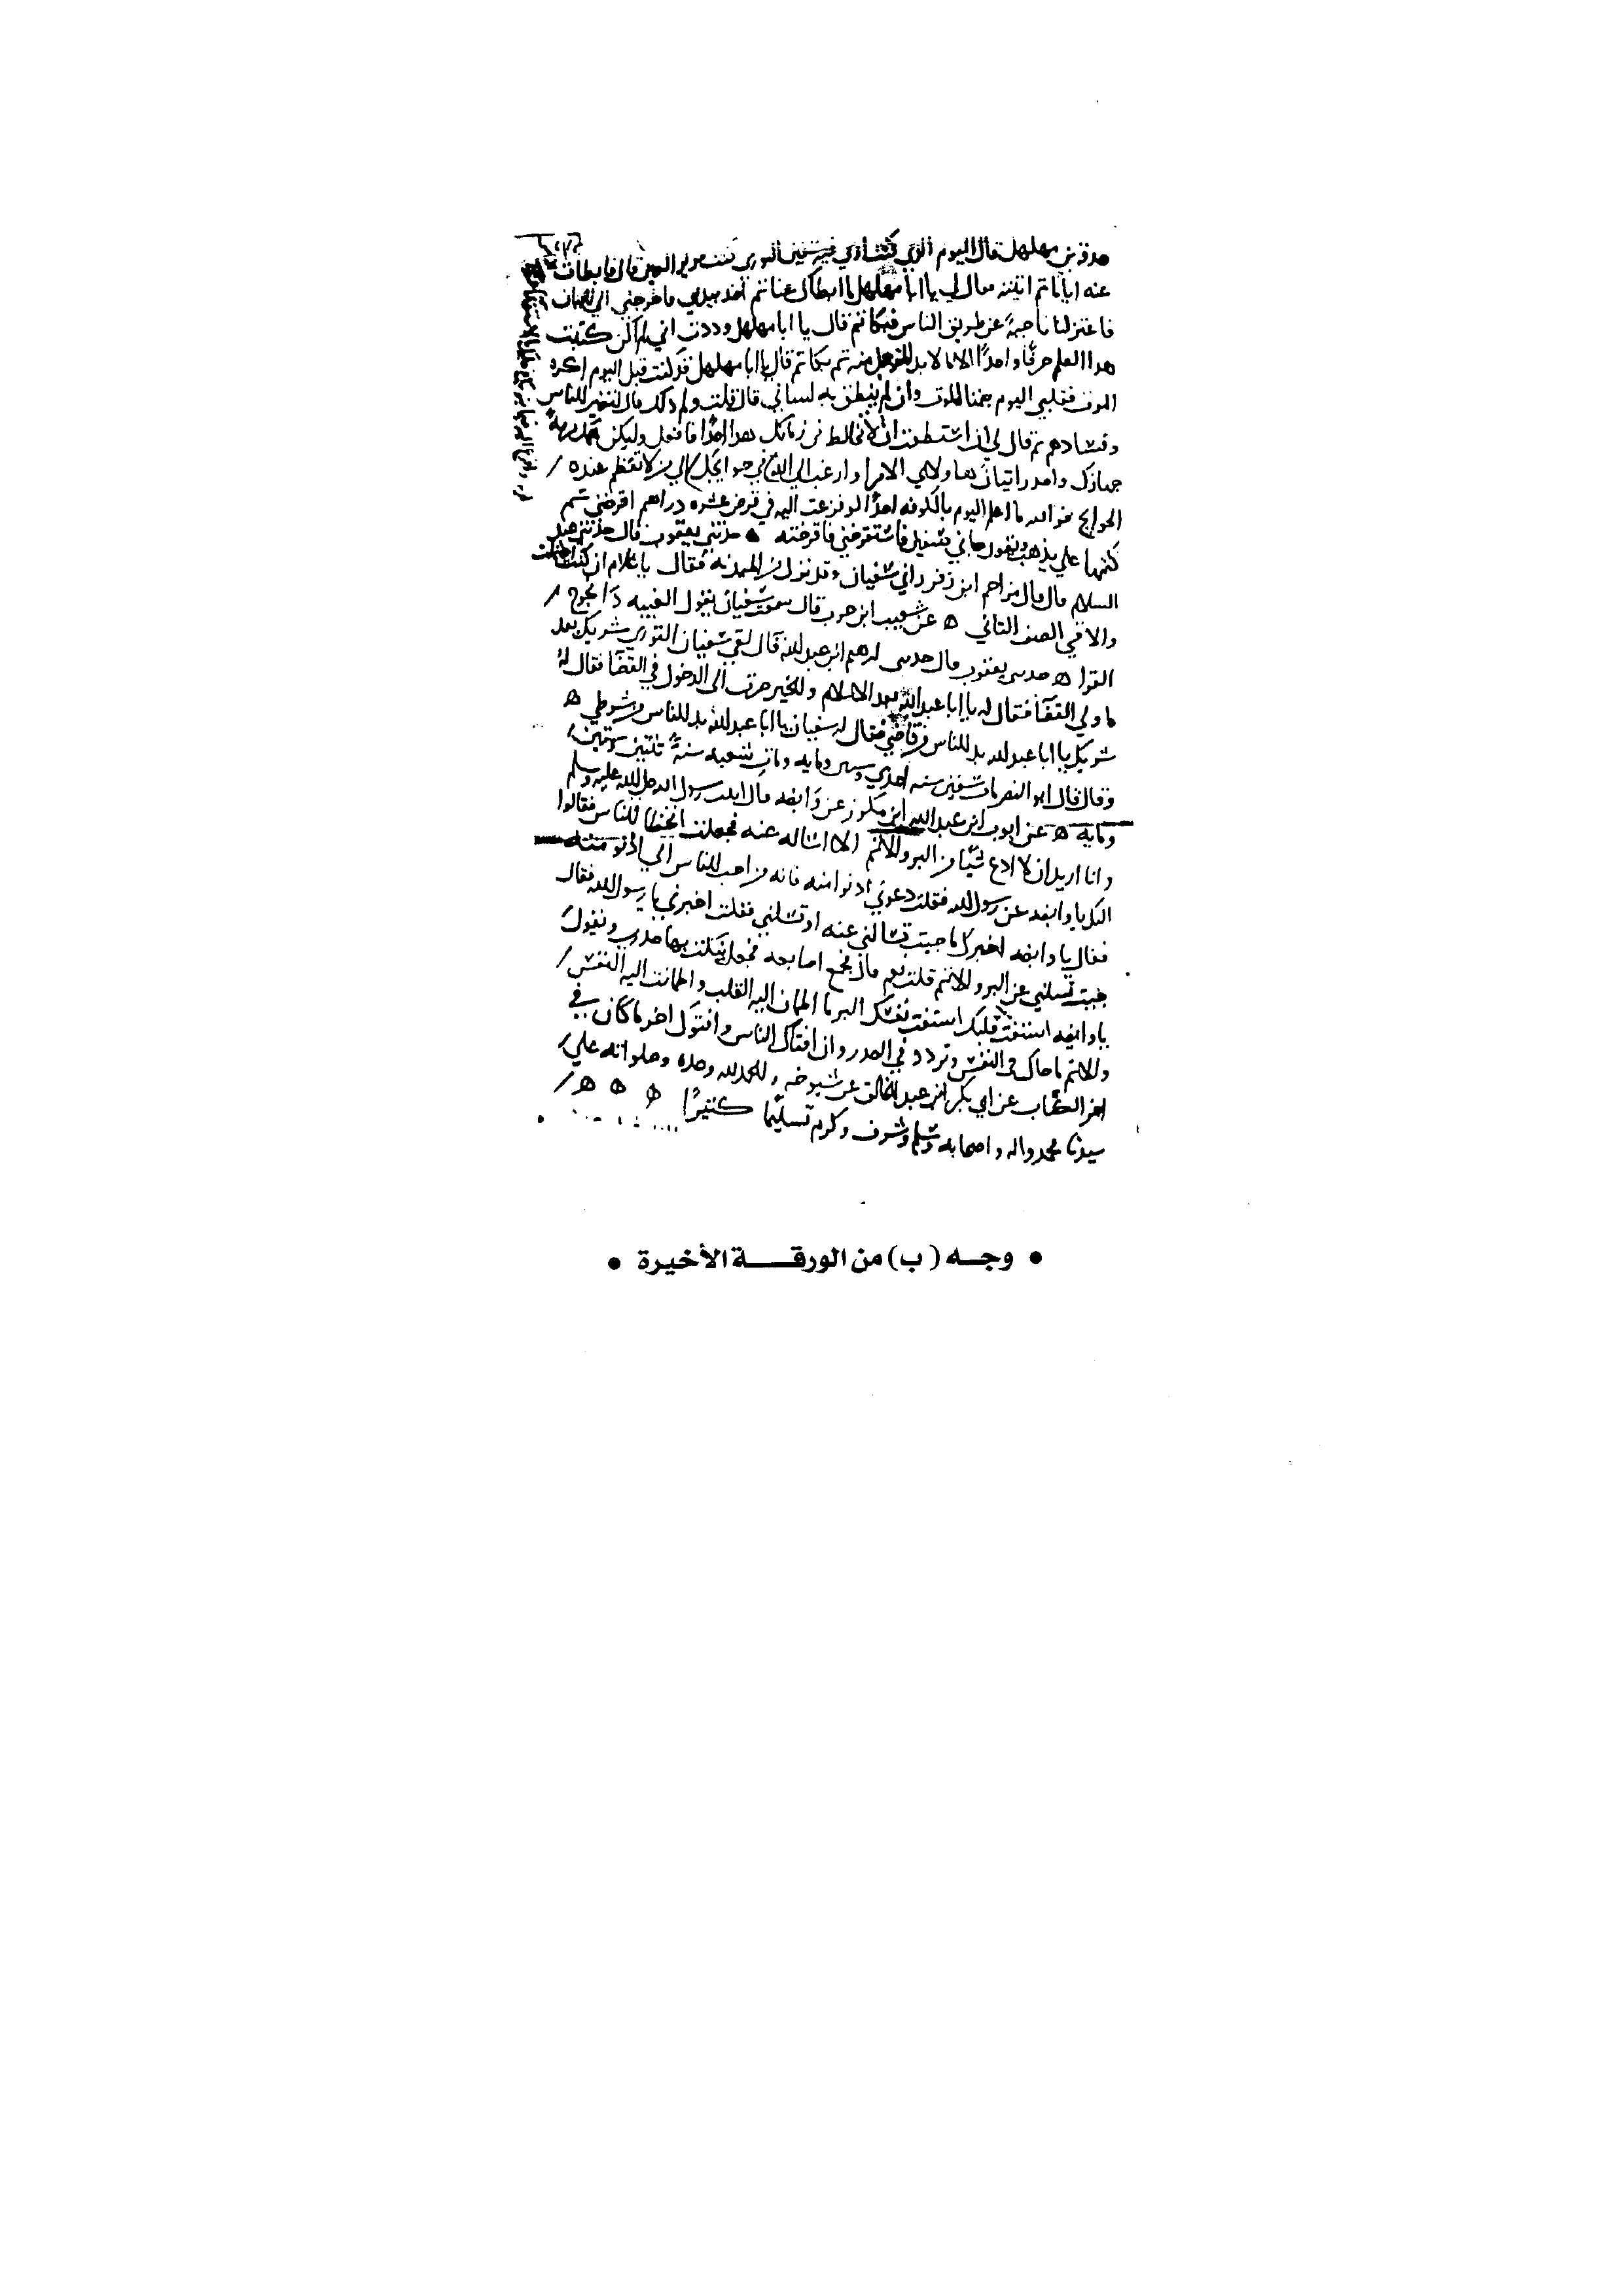 صدقه بن مهلهل قال اليوم الذي كنت فيه سفين الثوري قال فابطات
عنه اياما ثم اتيته فقال لي يا ابا مهلهل ما ابطاك عنا ثم اخذ بيدي فاخرجني الى الجبان
فاعتزلنا ناحية عن طريق الناس فبكا ثم قال يا ابا مهلهل وددت اني لم اكن كتبت
هدا العلم حرفا واحدًا الا ما لابد للرجل منه ثم بكا ثم قال يا ابا مهلهل قد كنت قبل اليوم اكره
الموت فقلبي اليوم يتمنا الموت وان لم ينطق به لساني قال قلت ولم ذلك قال لتغير الناس
وفسادهم ثم قال لي ان استطعت ان لا تخالط في زمانك هدا احدًا فافعل وليكن همك مرمة
جهازك واحدر اتيان هاولاي الامرا وارغب الى الله في حوايجك الي من لا تعظم عنده /
الحوايج فوالله ما اعلم اليوم بالكوفه احدًا لو فزعت اليه في قرض عشره دراهم اقرضني ثم
كتمها علي يذهب ويقول جاني سفين فاستقرضني فاقرضته ه حدثني يعقوب قال حدثني عبد
السلام قال قال مزاحم ابن زفر داني سفيان وقد نزل فقال يا غلام ان كنت
والا في الصف الثاني ه عن شعيب ابن حرب قال سمعت سفيان يقول الغيبه /
القرا ه حدثني يعقوب قال حدثني ابن عبد الله قال لقي سفيان الثوري شريك بعد
ما ولي القضا فقال له يا ابا عبد الله بعد الاسلام والخير صرت الى الدخول في القضا فقال له
شريك يا ابا عبد الله بد للناس من قاضي فقال له سفيان يا ابا عبد الله بد للناس من شرطي ه
وقال قال ابو النصر مات سفين سنه احدي وستين ومايه ومات شعبه سنة ستين
ومايه ه عن ايوب ابن عبد الله ابن مكرز عن وابصه قال اتيت رسول الله صلى الله عليه وسلم
وانا اريد ان لا ادع شيًا من البر والاثم الا اساله عنه فجعلت اتخطا الناس فقالوا
اليك يا وابصه عن رسول الله فقلت دعوني ادنوا منه فانه من احب الناس الي ادنو منه
فقال يا وابصه اخبرك ما جيت تسالني عنه او تسلني فقلت اخبرني يا رسول الله فقال
جيت تسلني عن البر والاثم قلت نعم قال فجمع اصابعه فجعل ينكت بها صدري ويقول
يا وابصه استفت قلبك استفت نفسك البر ما اطمان اليه القلب واطمانت اليه النفس /
والاثم ما حاك في النفس وتردد في الصدر وان افتاك الناس وافتوك اخر ما كان في
اخر الكتاب عن ابي بكر ابن عبد الخالق عن شيوخه والحمد لله وحده وصلواته علي /
سيدنا محمد واله واصحابه وسلم وشرف وكرم تسليما كثيرًا ه ه ه /
• وجه (ب) من الورقة الأخيرة •